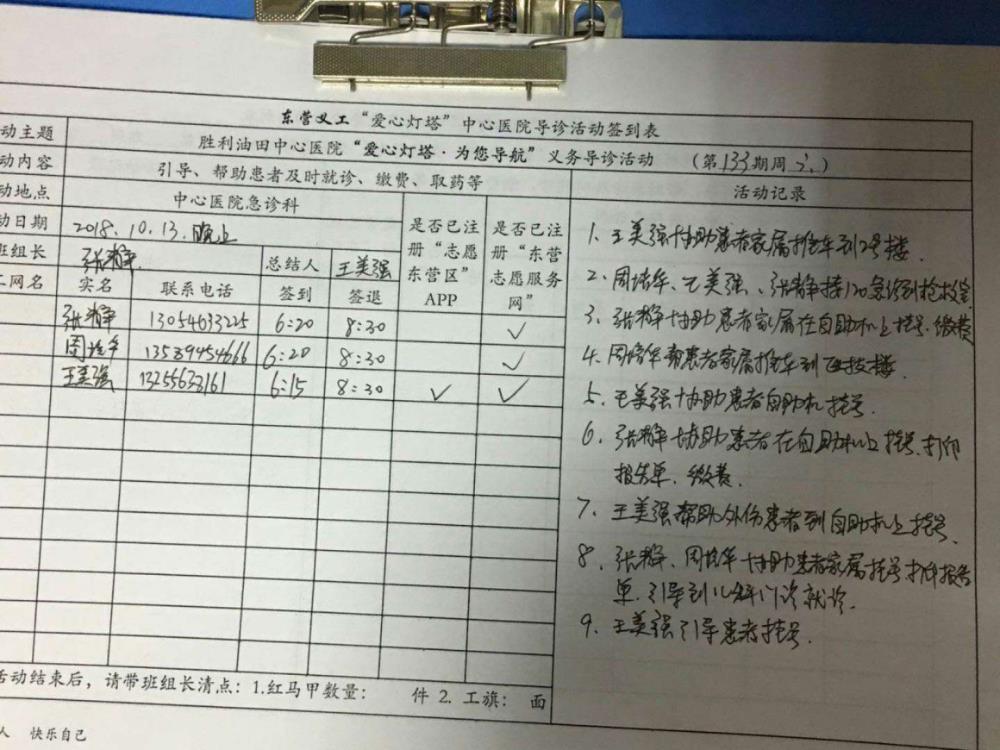 东营义工“爱心灯塔”中心医院导诊活动签到表
动主题 胜利油田中心医院“爱心灯塔·为您导航”义务导诊活动 (第133期周六)
动内容 引导、帮助患者及时就诊、缴费、取药等 活动记录
动地点 中心医院急诊科
动日期 2018.10.13.晚上
班组长 张静 总结人 王美强
工网名 实名 联系电话 签到 签退 是否已注册“志愿东营区”APP 是否已注册“东营志愿服务网”
张静 13054633225 6:20 8:30 ✓
周培华 13589454666 6:20 8:30 ✓
王美强 13255633161 6:15 8:30 ✓ ✓
1、王美强协助患者家属推车到2号楼.
2、周培华、王美强、张静接120急诊到抢救室
3、张静协助患者家属在自助机上挂号.缴费
4、周培华帮患者家属推车到医技楼.
5、王美强协助患者自助机挂号.
6、张静协助患者在自助机上挂号.打印
报告单.缴费.
7、王美强帮助外伤患者到自助机上挂号.
8、张静、周培华协助患者家属挂号打印报告
单.引导到儿科门诊就诊.
9、王美强引导患者挂号.
活动结束后，请带班组长清点：1.红马甲数量： 件 2. 工旗： 面
人 快乐自己